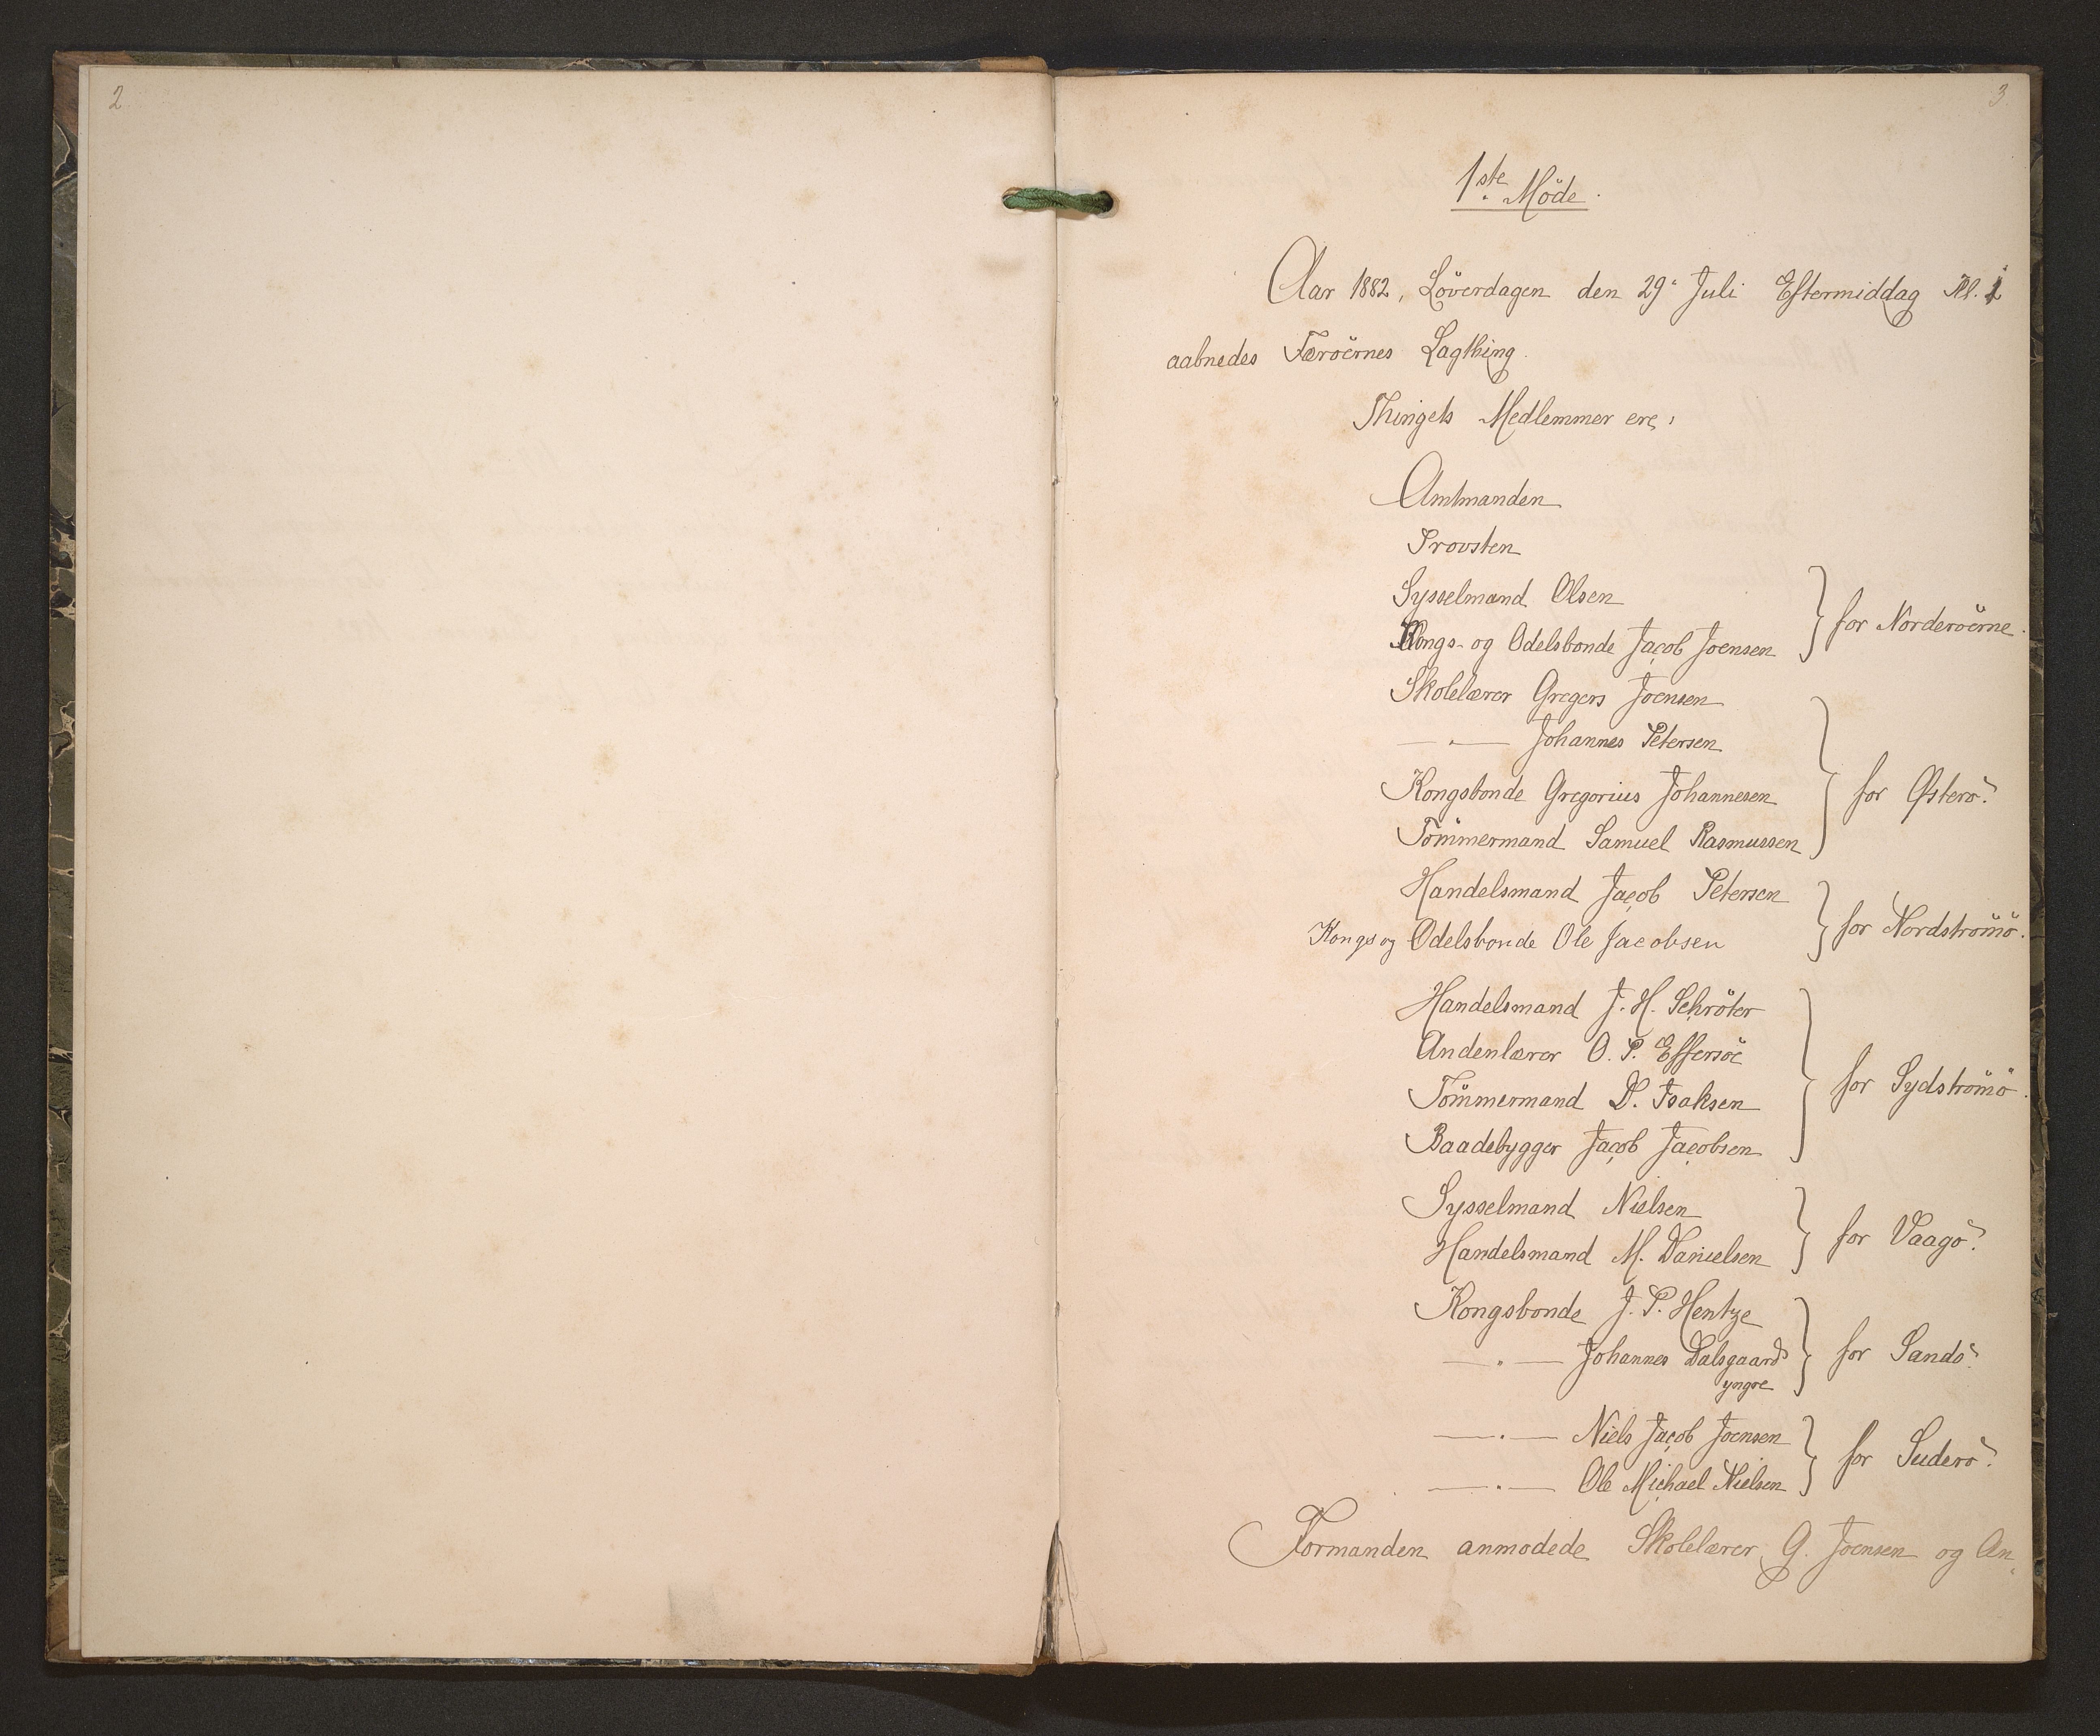 2
3
1ste Möde.
Aar 1882, Löverdagen den 29. Juli Eftermiddag Kl. 1
aabnedes Færöernes Lagthing.
Thingets Medlemmer ere:
Amtmanden
Provsten
Sysselmand Olsen
Kongs- og Odelsbonde Jacob Joensen } for Norderöerne.
Skolelærer Gregers Joensen
—"— Johannes Petersen
Kongsbonde Gregorius Johannesen } for Østerö.
Tömmermand Samuel Rasmussen
Handelsmand Jacob Petersen
Kongs og Odelsbonde Ole Jacobsen } for Nordströmö.
Handelsmand J. H. Schröter
Andenlærer O. P. Effersöe
Tömmermand D. Isaksen } for Sydströmö.
Baadebygger Jacob Jacobsen
Sysselmand Nielsen
Handelsmand M. Danielsen } for Vaagö.
Kongsbonde J. P. Hentze
—"— Johannes Dalsgaard } for Sandö.
yngre
—"— Niels Jacob Joensen
—"— Ole Michael Nielsen } for Suderö.
Formanden anmodede Skolelærer G. Joensen og An-